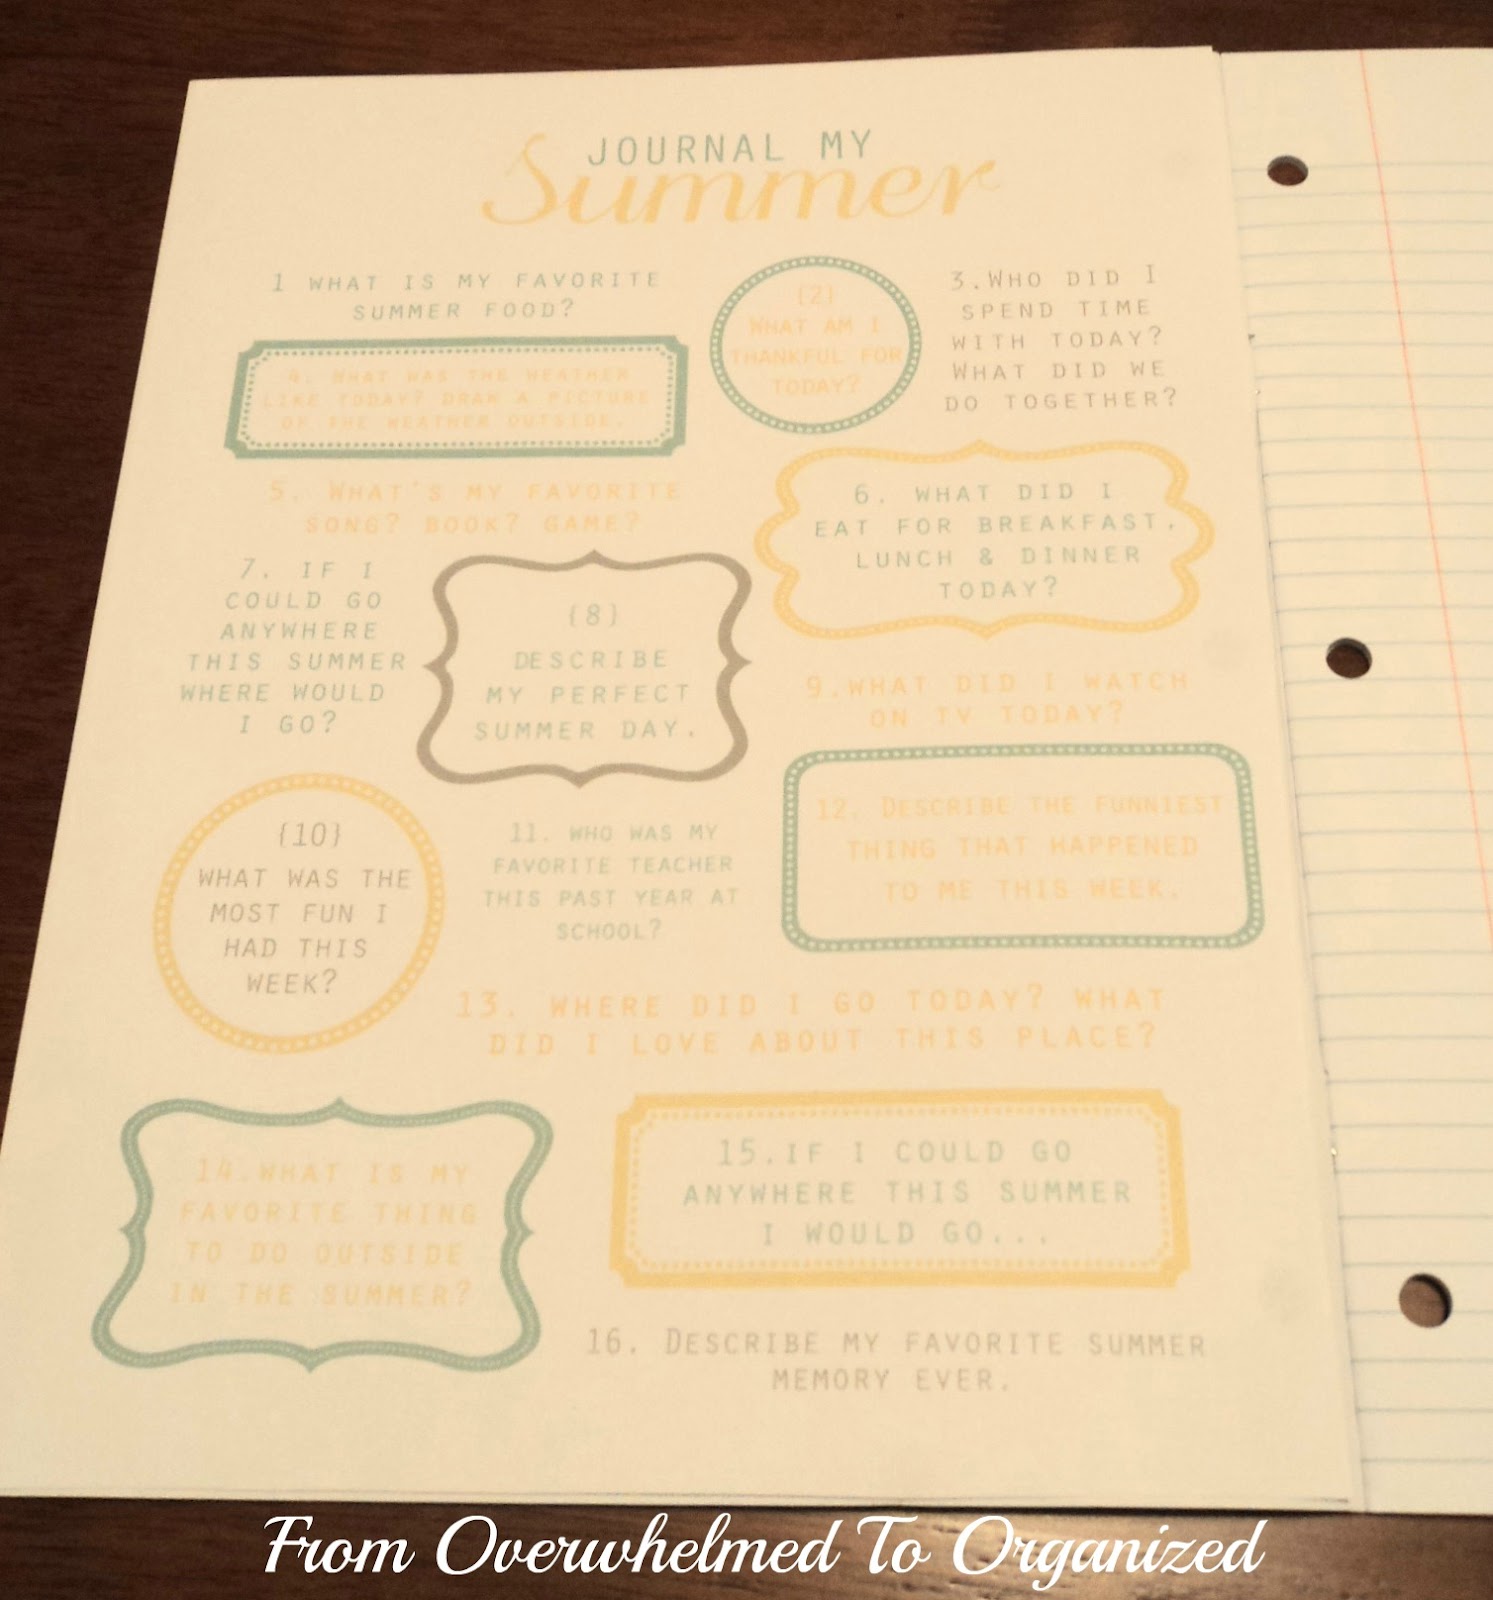 JOURNAL MY
Summer
1 WHAT IS MY FAVORITE
SUMMER FOOD?
{2}
WHAT AM I
THANKFUL FOR
TODAY?
3. WHO DID I
SPEND TIME
WITH TODAY?
WHAT DID WE
DO TOGETHER?
4. WHAT WAS THE WEATHER
LIKE TODAY? DRAW A PICTURE
OF THE WEATHER OUTSIDE.
5. WHAT'S MY FAVORITE
SONG? BOOK? GAME?
6. WHAT DID I
EAT FOR BREAKFAST,
LUNCH & DINNER
TODAY?
7. IF I
COULD GO
ANYWHERE
THIS SUMMER
WHERE WOULD
I GO?
{8}
DESCRIBE
MY PERFECT
SUMMER DAY.
9. WHAT DID I WATCH
ON TV TODAY?
{10}
WHAT WAS THE
MOST FUN I
HAD THIS
WEEK?
11. WHO WAS MY
FAVORITE TEACHER
THIS PAST YEAR AT
SCHOOL?
12. DESCRIBE THE FUNNIEST
THING THAT HAPPENED
TO ME THIS WEEK.
13. WHERE DID I GO TODAY? WHAT
DID I LOVE ABOUT THIS PLACE?
14. WHAT IS MY
FAVORITE THING
TO DO OUTSIDE
IN THE SUMMER?
15. IF I COULD GO
ANYWHERE THIS SUMMER
I WOULD GO...
16. DESCRIBE MY FAVORITE SUMMER
MEMORY EVER.
From Overwhelmed To Organized